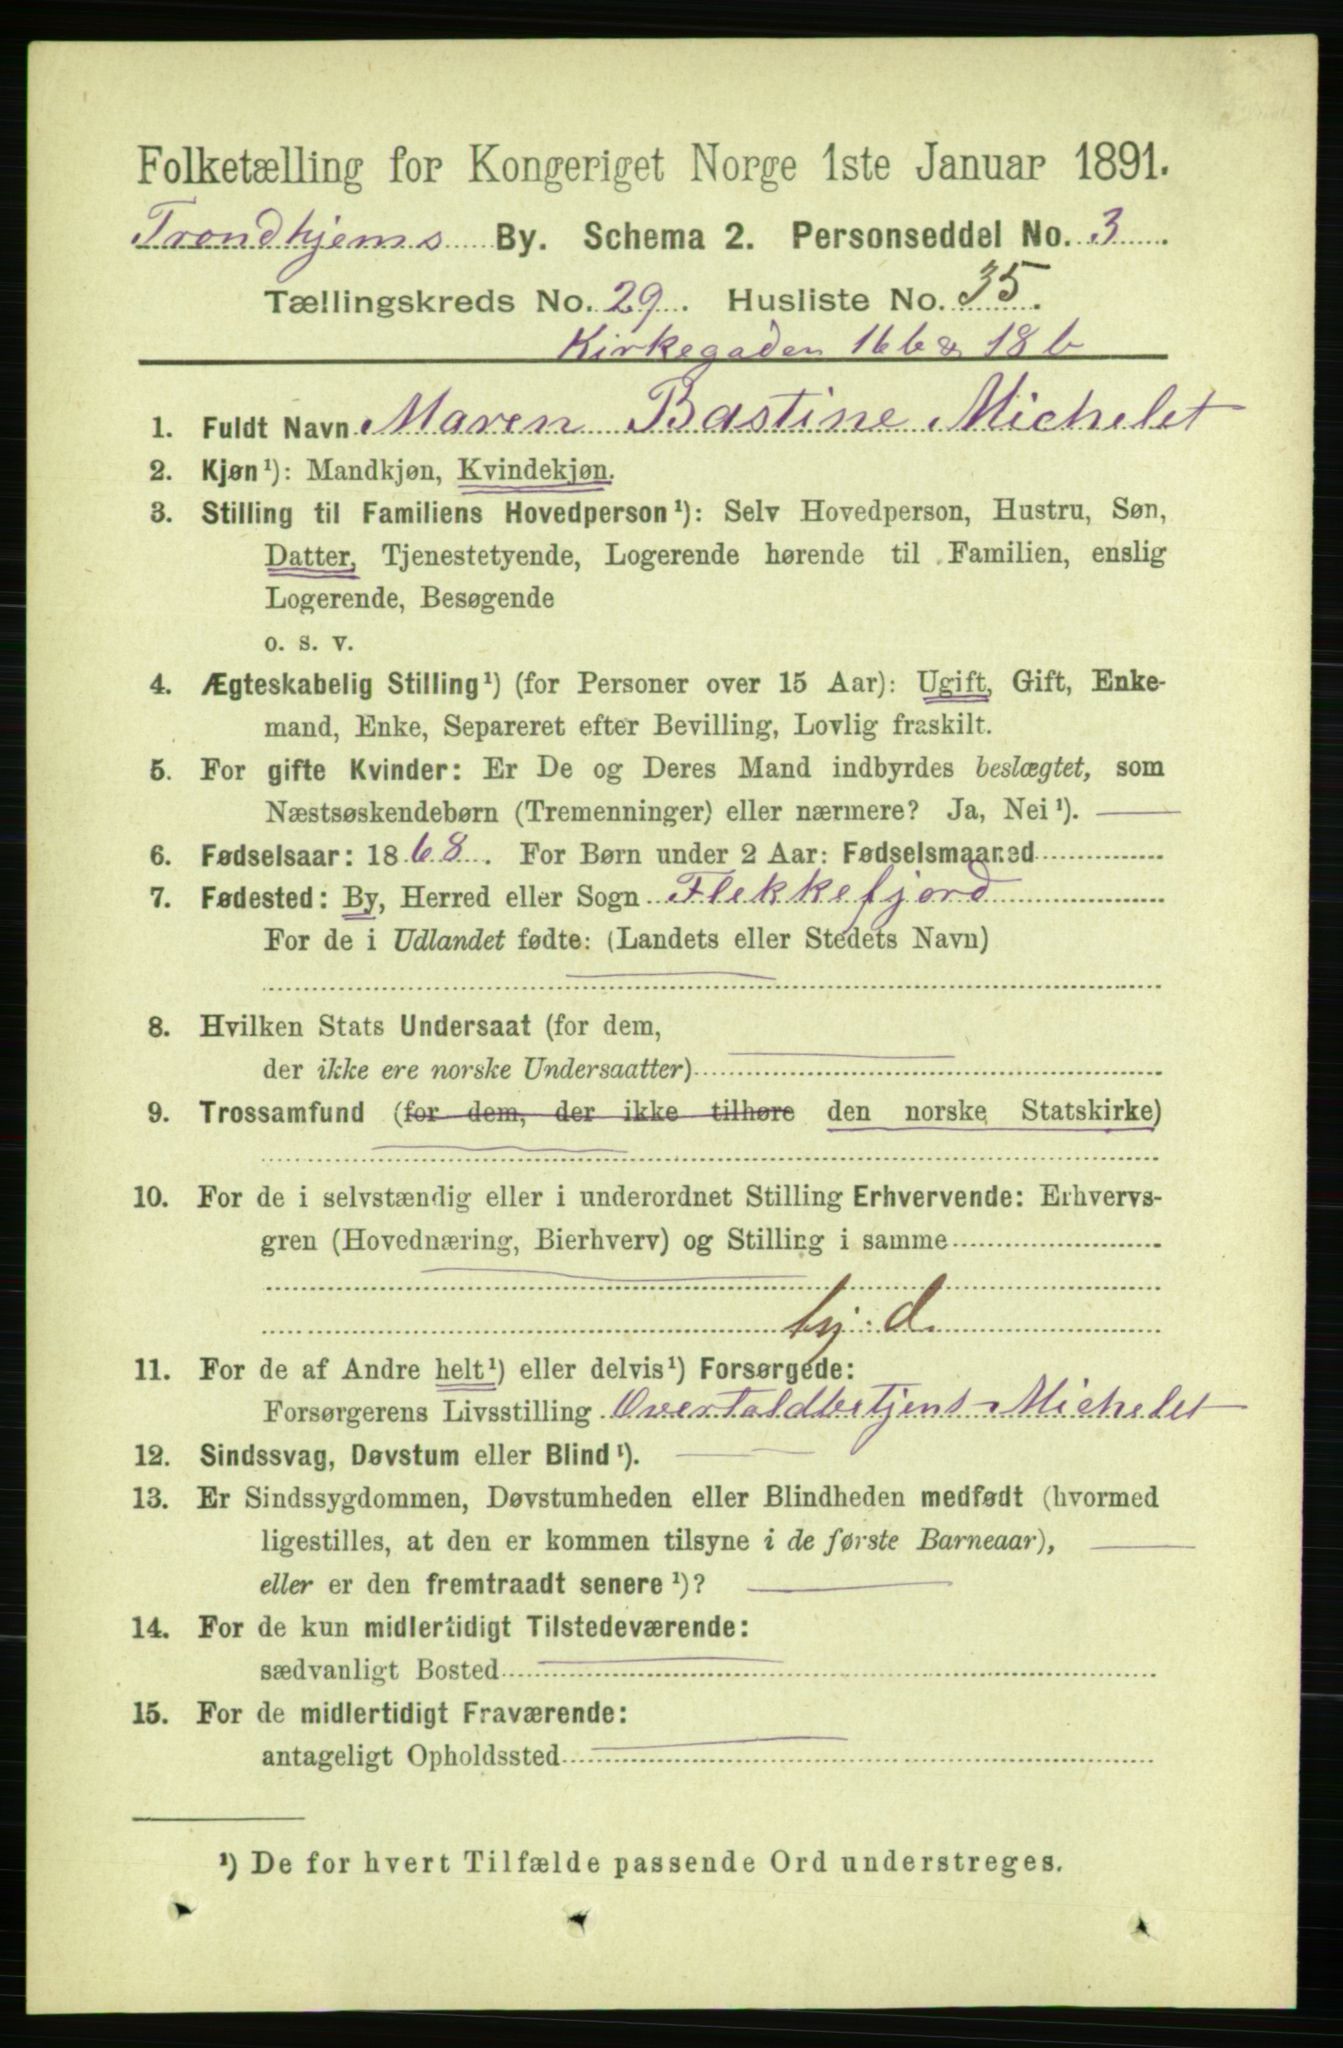 Folketælling for Kongeriget Norge 1ste Januar 1891.
Trondhjems By. Schema 2. Personseddel No. 3
Tællingskreds No. 29. Husliste No. 35.
Kirkegaden 16 b & 18 b
1. Fuldt Navn Maren Bastine Michelet
2. Kjøn¹): Mandkjøn, Kvindekjøn.
3. Stilling til Familiens Hovedperson¹): Selv Hovedperson, Hustru, Søn,
Datter, Tjenestetyende, Logerende hørende til Familien, enslig
Logerende, Besøgende
o. s. v.
4. Ægteskabelig Stilling¹) (for Personer over 15 Aar): Ugift, Gift, Enke-
mand, Enke, Separeret efter Bevilling, Lovlig fraskilt.
5. For gifte Kvinder: Er De og Deres Mand indbyrdes beslægtet, som
Næstsøskendebørn (Tremenninger) eller nærmere? Ja, Nei¹).
6. Fødselsaar: 1868. For Børn under 2 Aar: Fødselsmaaned
7. Fødested: By, Herred eller Sogn Flekkefjord
For de i Udlandet fødte: (Landets eller Stedets Navn)
8. Hvilken Stats Undersaat (for dem,
der ikke ere norske Undersaatter)
9. Trossamfund (for dem, der ikke tilhøre den norske Statskirke)
10. For de i selvstændig eller i underordnet Stilling Erhvervende: Erhvervs-
gren (Hovednæring, Bierhverv) og Stilling i samme
hj. d.
11. For de af Andre helt¹) eller delvis¹) Forsørgede:
Forsørgerens Livsstilling Overtoldbetjent Michelet
12. Sindssvag, Døvstum eller Blind¹).
13. Er Sindssygdommen, Døvstumheden eller Blindheden medfødt (hvormed
ligestilles, at den er kommen tilsyne i de første Barneaar),
eller er den fremtraadt senere¹)?
14. For de kun midlertidigt Tilstedeværende:
sædvanligt Bosted
15. For de midlertidigt Fraværende:
antageligt Opholdssted
¹) De for hvert Tilfælde passende Ord understreges.